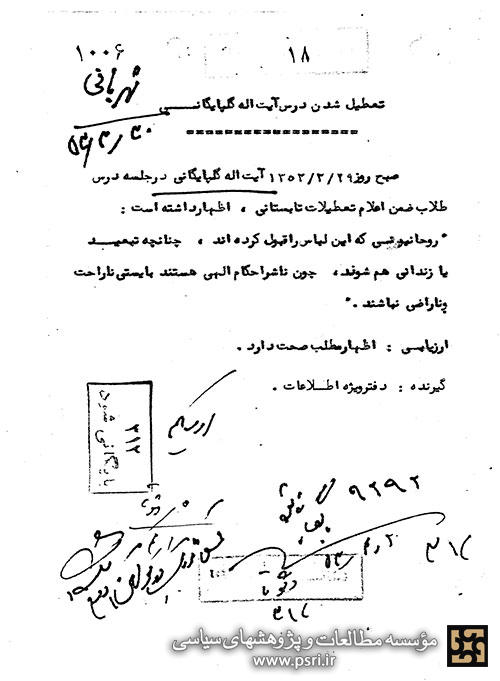 ۱۸
۱۰۰۶
شهربانی
۵۳/۳/۳۰
تعطیل شدن درس آیت اله گلپایگانی
==================
صبح روز ۱۳۵۳/۳/۲۹ آیت اله گلپایگانی در جلسه درس
طلاب ضمن اعلام تعطیلات تابستانی ، اظهار داشته است :
"روحانیونی که این لباس را قبول کرده اند ، چنانچه تبعید
یا زندانی هم شوند ، چون ناشر احکام الهی هستند بایستی ناراحت
و ناراضی نباشند ."
ارزیابی : اظهار مطلب صحت دارد .
گیرنده : دفتر ویژه اطلاعات .
۳۱۲
بایگانی شود
۹۲۹۲
۳۱۲
۳۱۲
مؤسسه مطالعات و پژوهشهای سیاسی
www.psri.ir